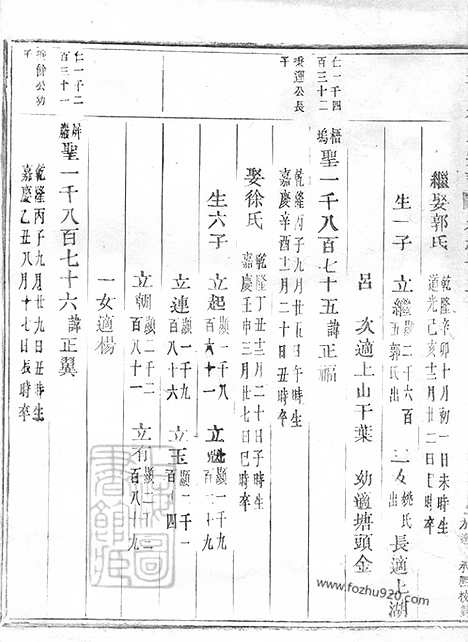 繼娶郭氏
乾隆辛卯十月初一日未時生
道光己亥十二月初二日巳時卒
生一子
立繼
顯二千六百
五郭氏出
三女
姚氏出
長適上湖
呂
次適上山干葉
幼適塘頭金
仁一千四
百三十二
秉運公長
子
梧塢
聖一千八百七十五諱正福
乾隆丙子九月廿五日丑時生
嘉慶辛酉十二月二十日丑時卒
娶徐氏
乾隆丁丑十二月二十日子時生
嘉慶壬申三月廿七日巳時卒
生六子
立起
顯一千八
百六十一
立
顯一千九
立連
顯一千九
百八十六
立玉
顯二千一
百 十四
立朝
顯二千二
百八十一
立有
顯二千二
百八十九
一女適楊
仁一千二
百三十一
公幼
子
聖一千八百七十六諱正翼
乾隆丙子九月廿九日丑時生
嘉慶乙丑八月十七日辰時卒
圖
書館
www.fozhu920.com